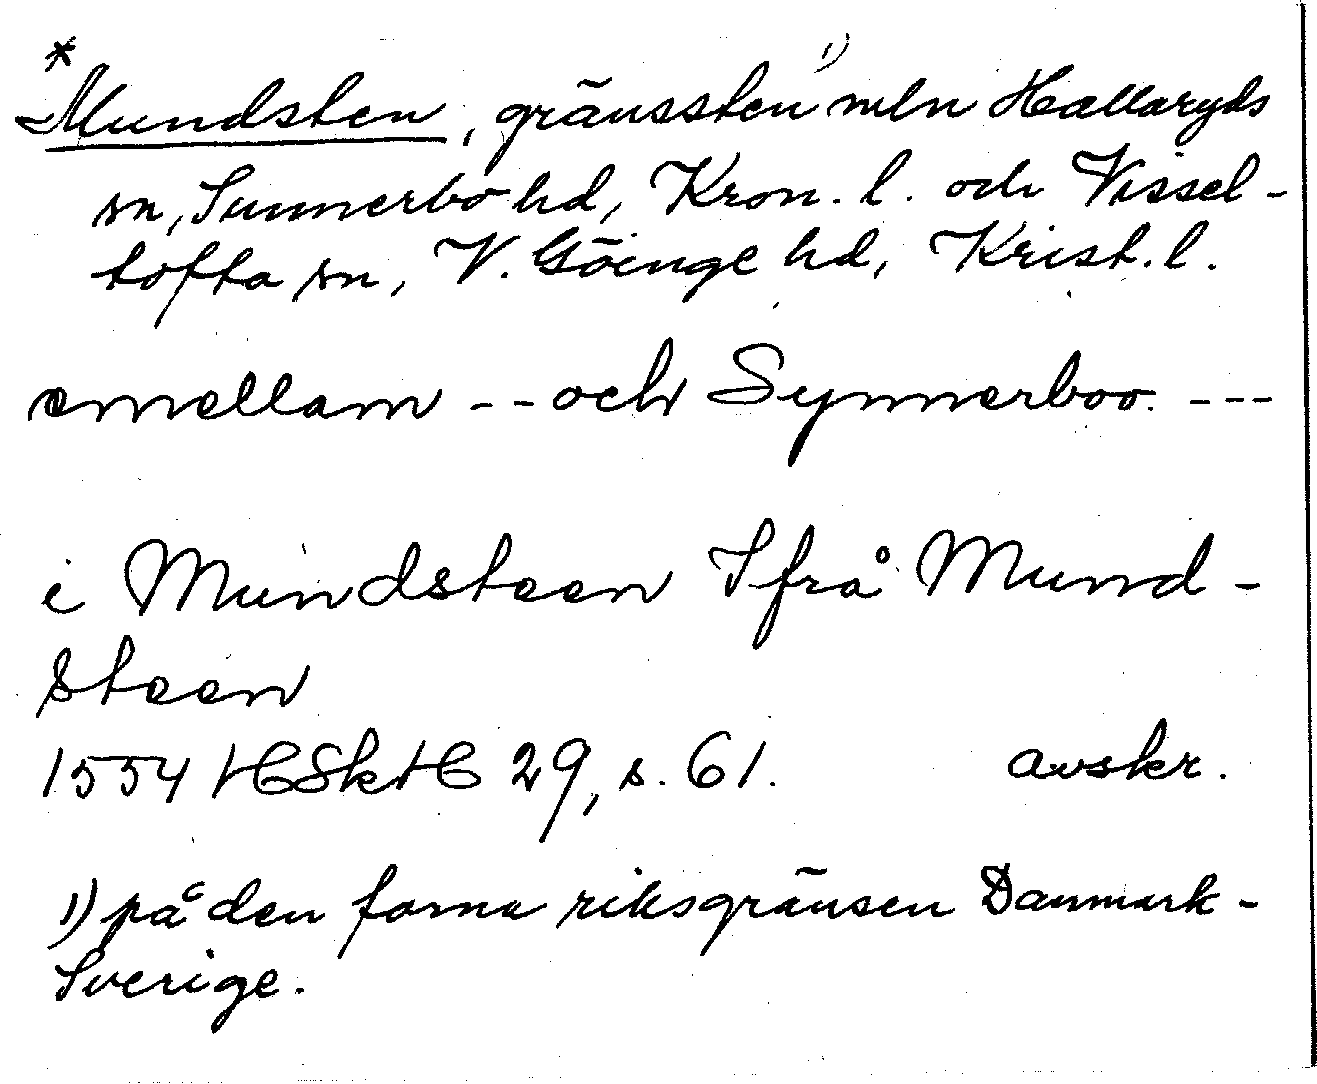 * 
Mundsten, gränssten ¹⁾ mln Hallaryds
sn, Sunnerbo hd, Kron. l. och Vissel-
tofta sn, V. Göinge hd, Krist. l.
emellam -- och Synnerboo. ---
i Mundsteen Ifrå Mund-
steen
1554 HSkH 29, s. 61. avskr.
1) på den forna riksgränsen Danmark-
Sverige.